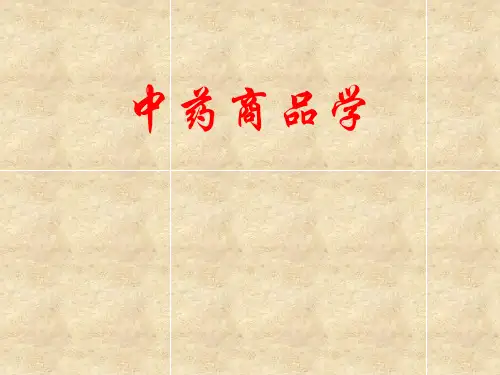 中药商品学